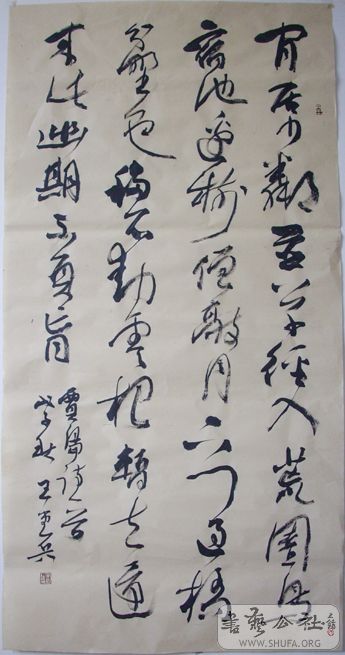 閒居少鄰並草徑入荒園鳥
宿池邊樹僧敲月下門過橋
分野色移石動雲根暫去還
來此幽期不負言
賈島詩一首
戊子秋 王
書藝公社
WWW.SHUFA.ORG